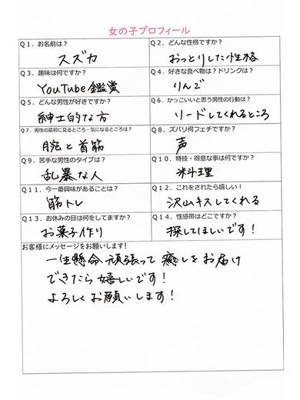 女の子プロフィール
Q1. お名前は?
Q2. どんな性格ですか?
スズカ
おっとりした性格
Q3. 趣味は何ですか?
Q4. 好きな食べ物は?ドリンクは?
YouTube鑑賞
りんご
Q5. どんな男性が好きですか?
Q6. かっこいいと思う男性の行動は?
紳士的な方
リードしてくれるところ
Q7. 男性の最初に見るところ・気になるところは?
Q8. ズバリ何フェチですか?
腕と首筋
声
Q9. 苦手な男性のタイプは?
Q10. 特技・得意な事は何ですか?
乱暴な人
料理
Q11. 今一番興味があることは?
Q12. これをされたら嬉しい!
筋トレ
沢山キスしてくれる
Q13. お休みの日は何をしてますか?
Q14. 性感帯はどこですか?
お菓子作り
探してほしいです!
お客様にメッセージをお願いします!
一生懸命頑張って癒しをお届け
できたら嬉しいです!
よろしくお願いします!